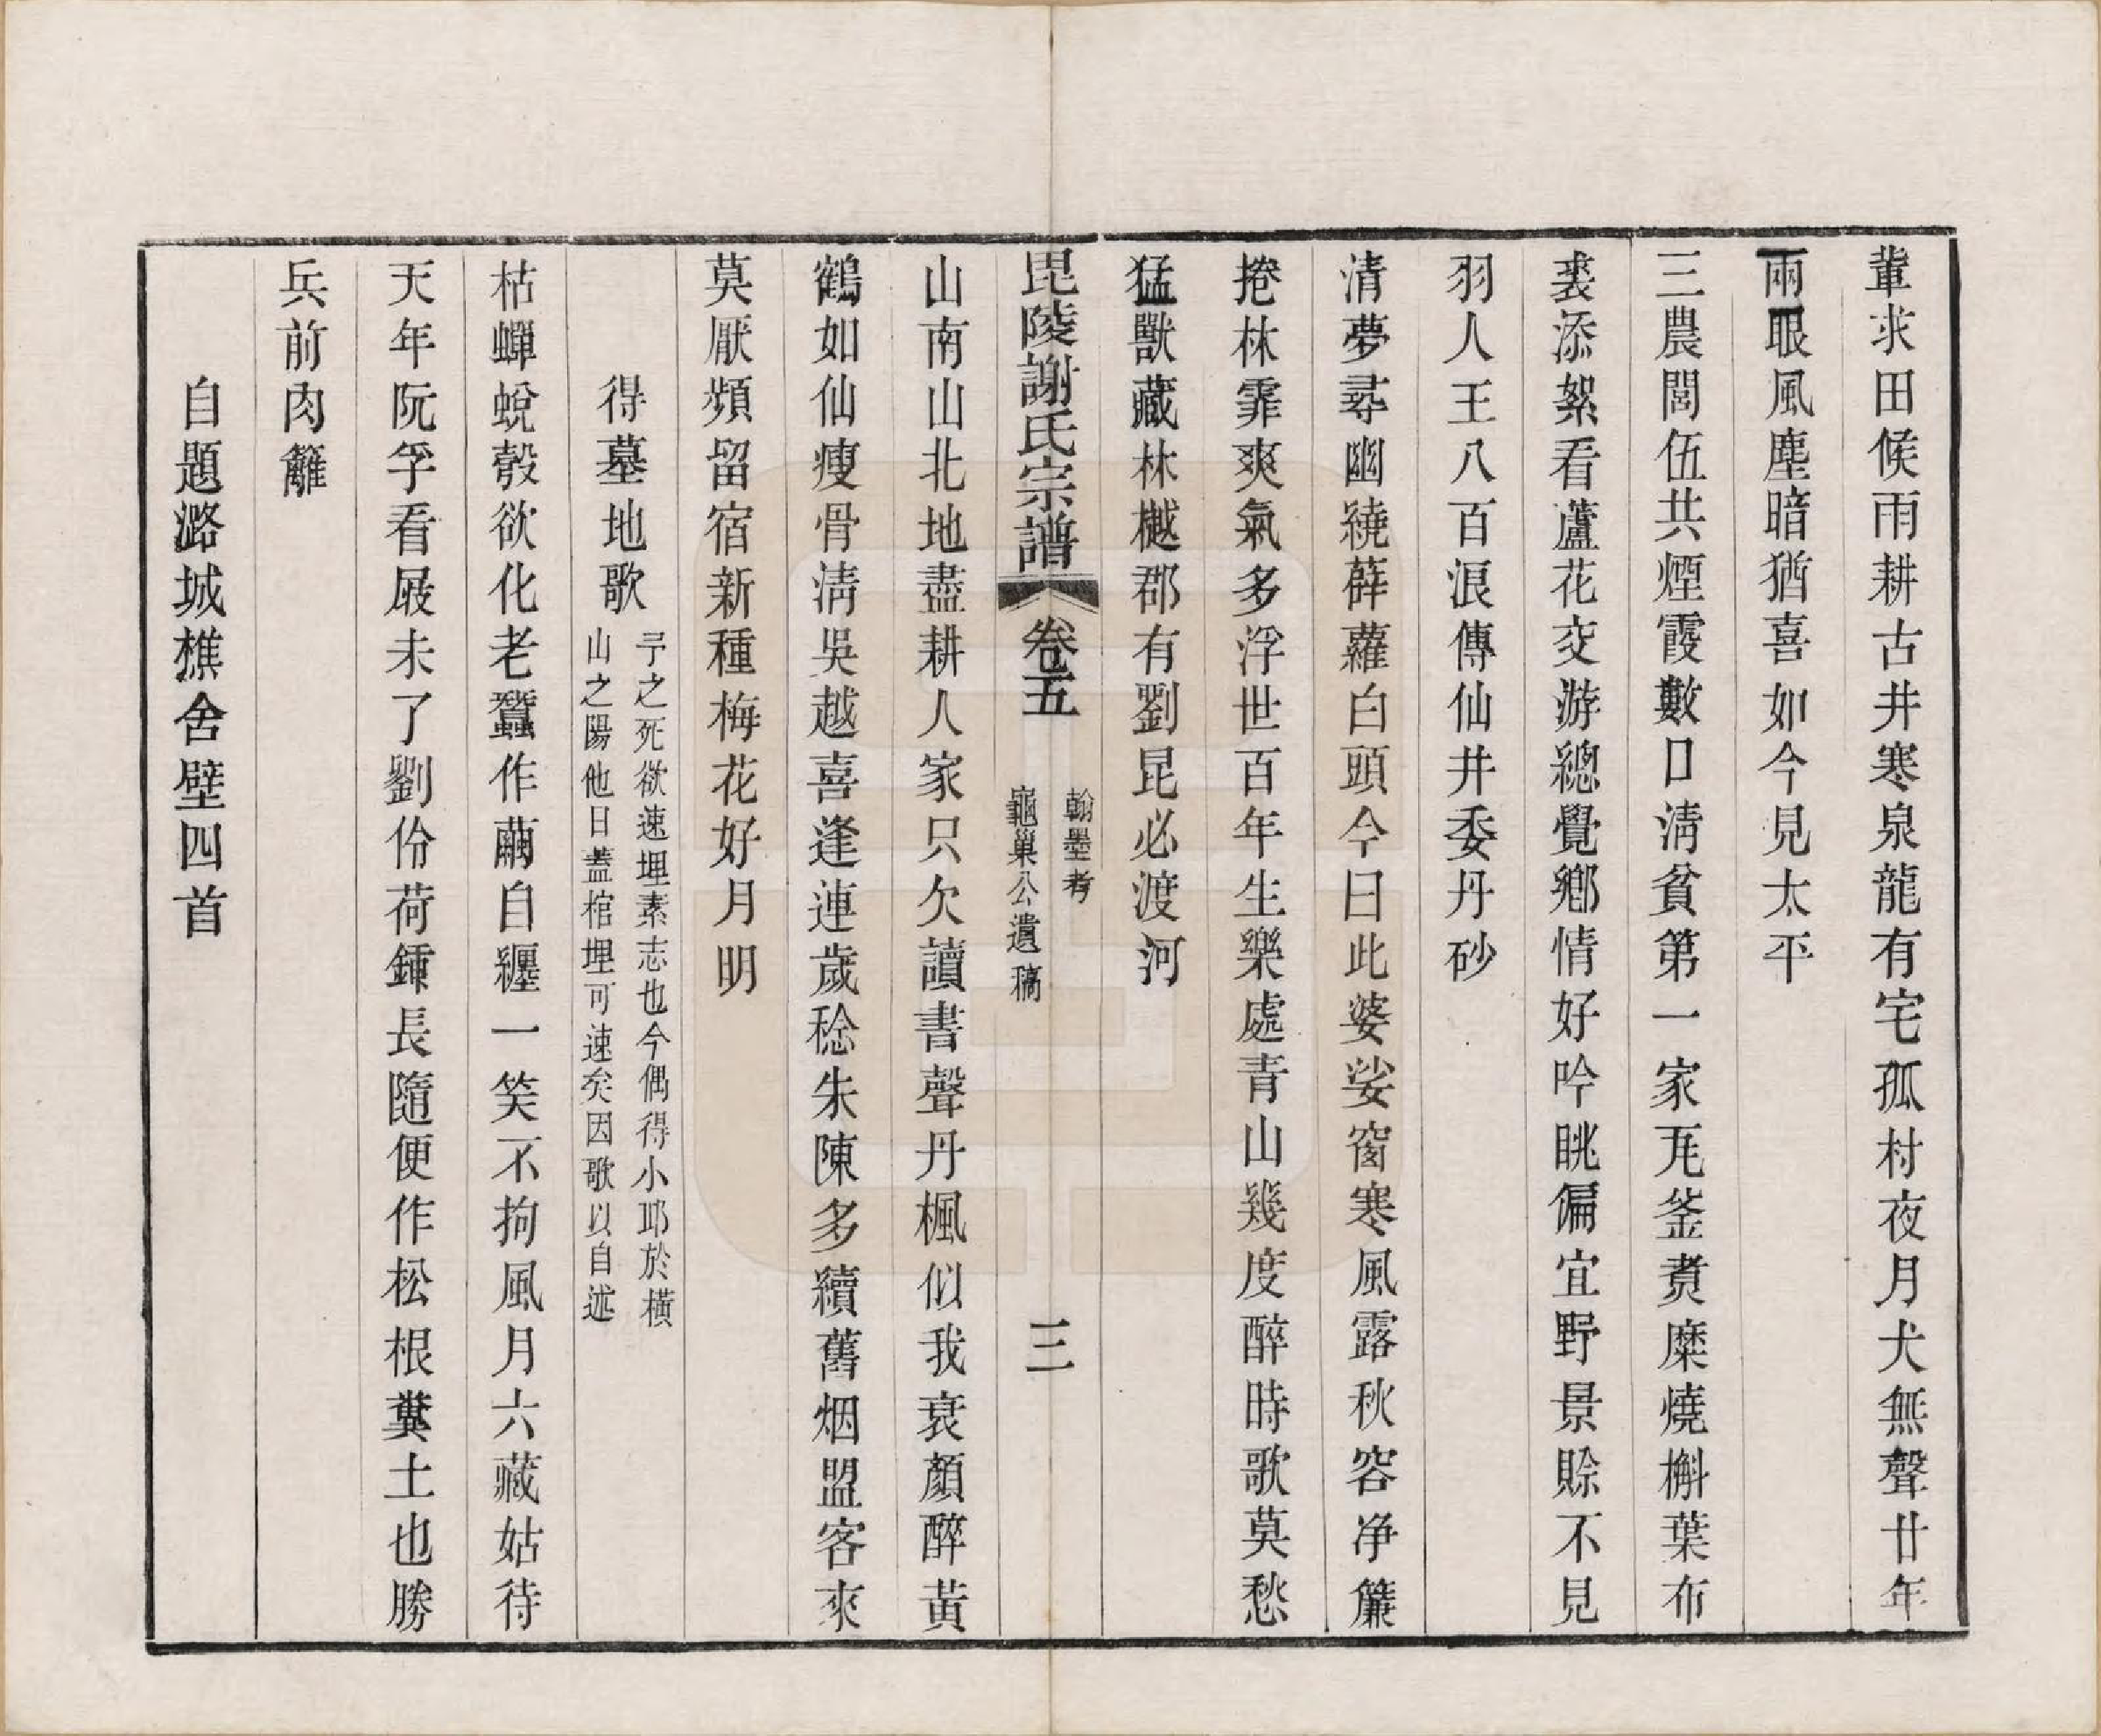 輩求田候雨耕古井寒泉龍有宅孤村夜月犬無聲廿年
兩眼風塵暗猶喜如今見太平
三農閭伍共煙霞數口淸貧第一家瓦釜煑糜燒槲葉布
裘添絮看蘆花交游總覺鄕情好吟眺偏宜野景賒不見
羽人王八百浪傳仙井委丹砂
清夢尋幽繞薜蘿白頭今日此婆娑窗寒風露秋容净簾
捲林霏爽氣多浮世百年生樂處青山幾度醉時歌莫愁
猛獸藏林樾郡有劉昆必渡河
毘陵謝氏宗譜 卷五 翰墨考
龜巢公遺稿 三
山南山北地盡耕人家只欠讀書聲丹楓似我衰顏醉黃
鶴如仙瘦骨淸吳越喜逢連歲稔朱陳多續舊烟盟客來
莫厭頻留宿新種梅花好月明
得墓地歌 予之死欲速埋素志也今偶得小邱於橫
山之陽他日蓋棺埋可速矣因歌以自述
枯蟬蛻殼欲化老蠶作繭自纏一笑不拘風月六藏姑待
天年阮孚看屐未了劉伶荷鍤長隨便作松根糞土也勝
兵前肉籬
自題潞城樵舍壁四首